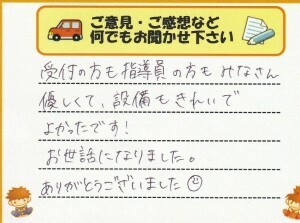 ご意見・ご感想など
何でもお聞かせ下さい
受付の方も指導員の方もみなさん
優しくて、設備もきれいで
よかったです!
お世話になりました。
ありがとうございました☺